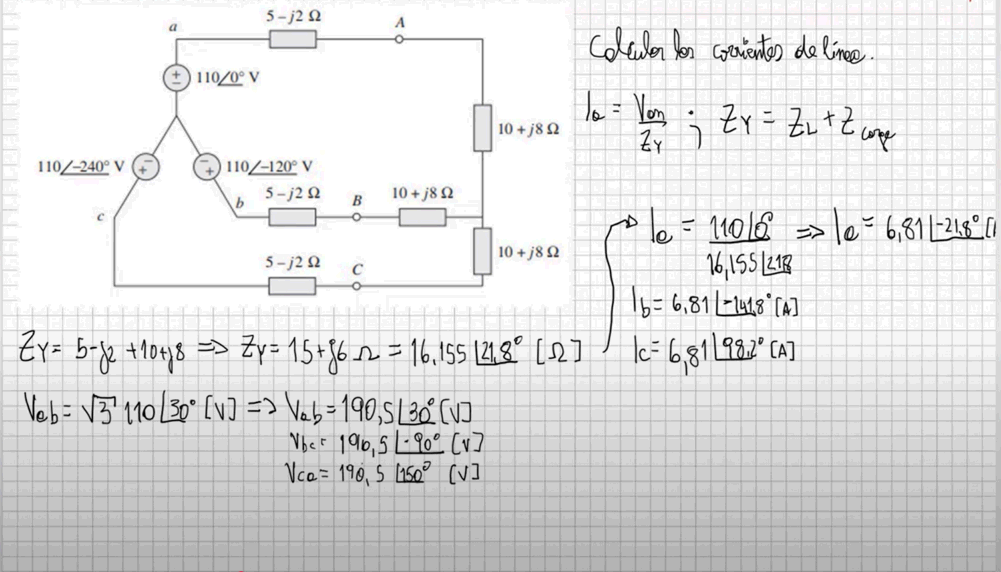 5 – j2 Ω
a
A
110/0° V
10 + j8 Ω
110/–240° V
110/–120° V
5 – j2 Ω
10 + j8 Ω
b
B
c
5 – j2 Ω
C
10 + j8 Ω
Calcular las corrientes de línea.
Ia = Van / ZY ; ZY = ZL + Z carga
Ia = 110∠0° / 16,155∠21,8 => Ia = 6,81∠-21,8° [
Ib = 6,81∠-141,8° [A]
Ic = 6,81∠98,2° [A]
ZY = 5-j2 + 10+j8 => ZY = 15+j6 Ω = 16,155∠21,8° [Ω]
Vab = √3 110∠30° [V] => Vab = 190,5∠30° [V]
Vbc = 190,5∠-90° [V]
Vca = 190,5∠150° [V]